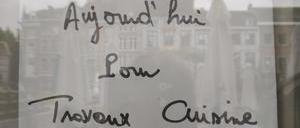 Aujourd'hui
Pour
Travaux Cuisine